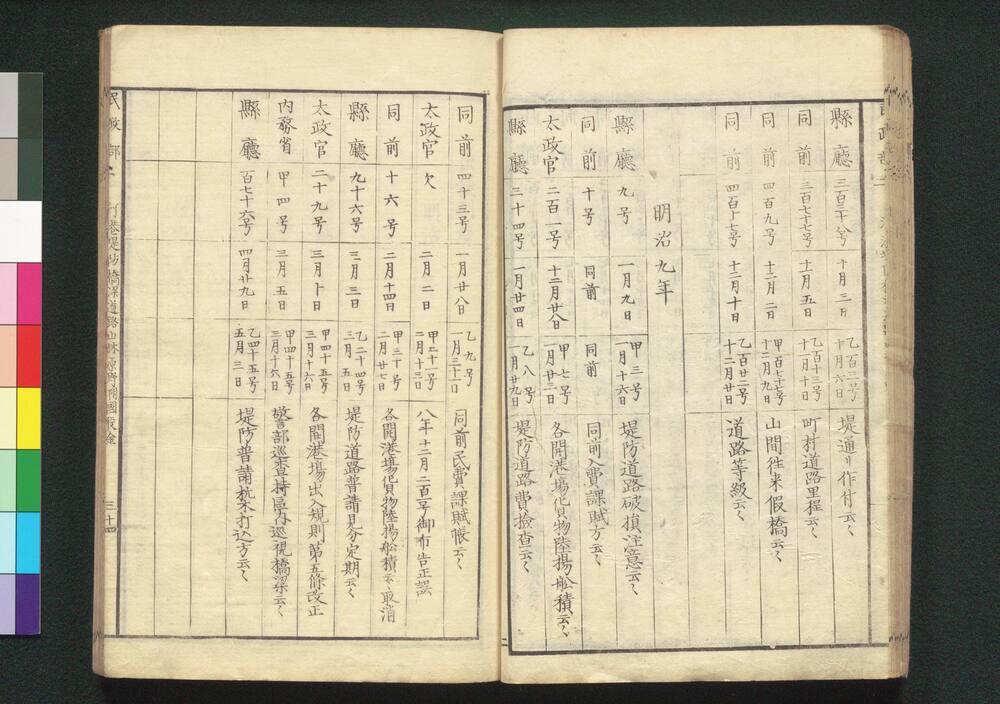 縣廳 三百三十八号 十月三日 乙百三号 十月六日 堤通リ作付云〻
同前 三百七十七号 十一月五日 乙百十三号 十一月十日 町村道路里程云〻
同前 四百九号 十二月二日 甲百七十七号 十二月九日 山間往来假橋云〻
同前 四百十七号 十二月十日 乙百廿二号 十二月廿日 道路等級云〻
明治九年
縣廳 九号 一月九日 甲三号 一月十六日 堤防道路破損注意云〻
同前 十号 同前 同前 同前入費課賦方云〻
太政官 二百一号 十二月廿八日 甲七号 一月廿二日 各開港場化貨物陸揚舩積云〻
縣廳 三十四号 一月廿四日 乙八号 一月廿九日 堤防道路費撿査云〻
同前 四十三号 一月廿八日 乙九号 一月三十一日 同前民費課賦帳云〻
太政官 欠 二月二日 甲二十一号 二月十三日 八年十二月二百一号御布告正誤
同前 十六号 二月十四日 甲三十号 二月廿七日 各開港場貨物陸揚舩積云〻取消
縣廳 九十六号 三月三日 乙二十四号 三月五日 堤防道路普請見分定期云〻
太政官 二十九号 三月十日 甲四十五号 三月十六日 各開港場出入規則第五條改正
内務省 甲四号 三月五日 甲四十五号 三月十六日 警部巡査持區内巡視橋梁云〻
縣廳 百七十六号 四月廿九日 乙四十五号 五月三日 堤防普請杭木打込方云〻
民政部二 河港堤防橋梁道路山林原野開國役金 三十四